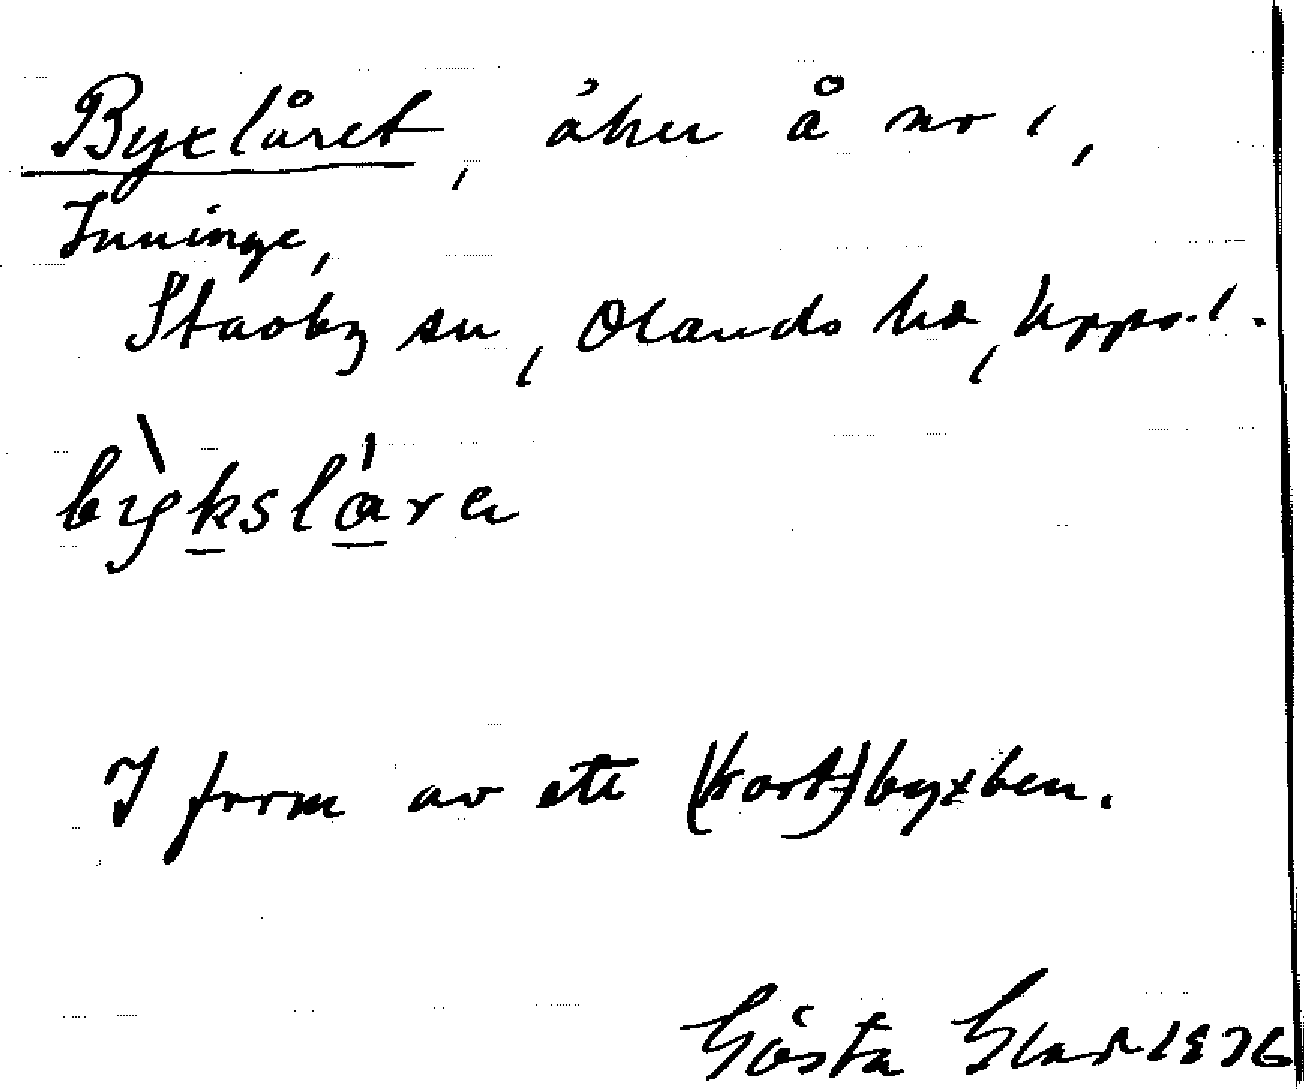 Byxlåret, åker å nr 1,
Inninge,
Stavby sn, Olands hd, Uppsl.
bykslåra
I form av ett (kort-)byxben.
Gösta 1976